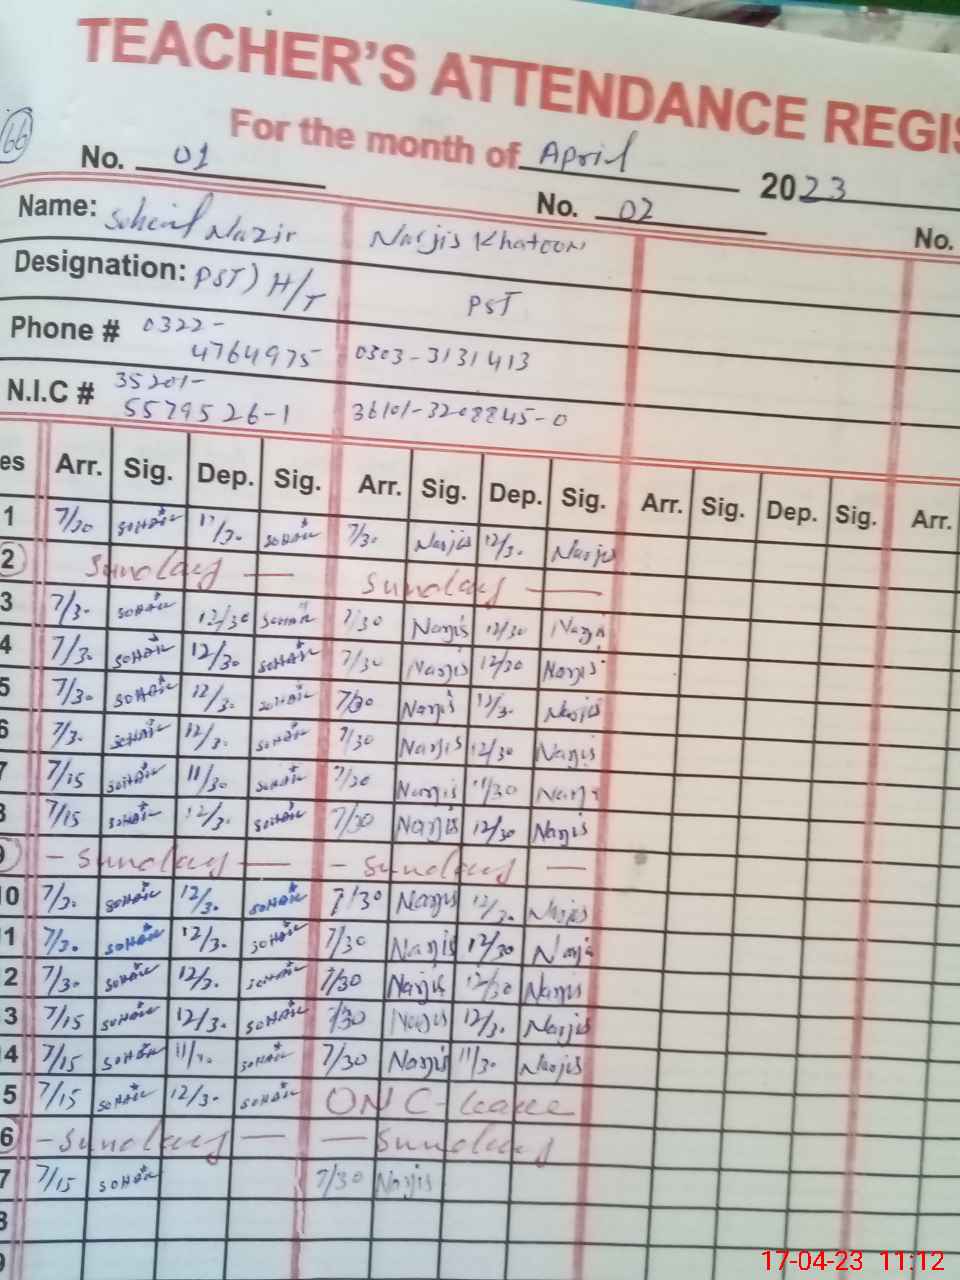 TEACHER'S ATTENDANCE REGIS
For the month of April 2023
66
No. 01 No. 02 No.
Name: Sohail Nazir Narjis Khatoon
Designation: PST) H/T PST
Phone # 0322-
4764975 0303-3131413
N.I.C # 35201-
5579526-1 36101-3208845-0
es Arr. Sig. Dep. Sig. Arr. Sig. Dep. Sig. Arr. Sig. Dep. Sig. Arr.
1 7/30 SOHAIL 12/30 SOHAIL 7/30 Narjis 12/30 Narjis
2 Sunday — Sunday —
3 7/30 SOHAIL 12/30 SOHAIL 7/30 Narjis 12/30 Narjis
4 7/30 SOHAIL 12/30 SOHAIL 7/30 Narjis 12/30 Narjis
5 7/30 SOHAIL 12/30 SOHAIL 7/30 Narjis 12/30 Narjis
6 7/30 SOHAIL 12/30 SOHAIL 7/30 Narjis 12/30 Narjis
7 7/15 SOHAIL 11/30 SOHAIL 7/30 Narjis 11/30 Narjis
8 7/15 SOHAIL 12/30 SOHAIL 7/30 Narjis 12/30 Narjis
9 - Sunday — - Sunday —
10 7/30 SOHAIL 12/30 SOHAIL 7/30 Narjis 12/30 Narjis
11 7/30 SOHAIL 12/30 SOHAIL 7/30 Narjis 12/30 Narjis
2 7/30 SOHAIL 12/30 SOHAIL 7/30 Narjis 12/30 Narjis
3 7/15 SOHAIL 12/30 SOHAIL 7/30 Narjis 12/30 Narjis
4 7/15 SOHAIL 11/30 SOHAIL 7/30 Narjis 11/30 Narjis
5 7/15 SOHAIL 12/30 SOHAIL ON C-leave
6 - Sunday — — Sunday
7 7/15 SOHAIL 7/30 Narjis
8
9
17-04-23 11:12